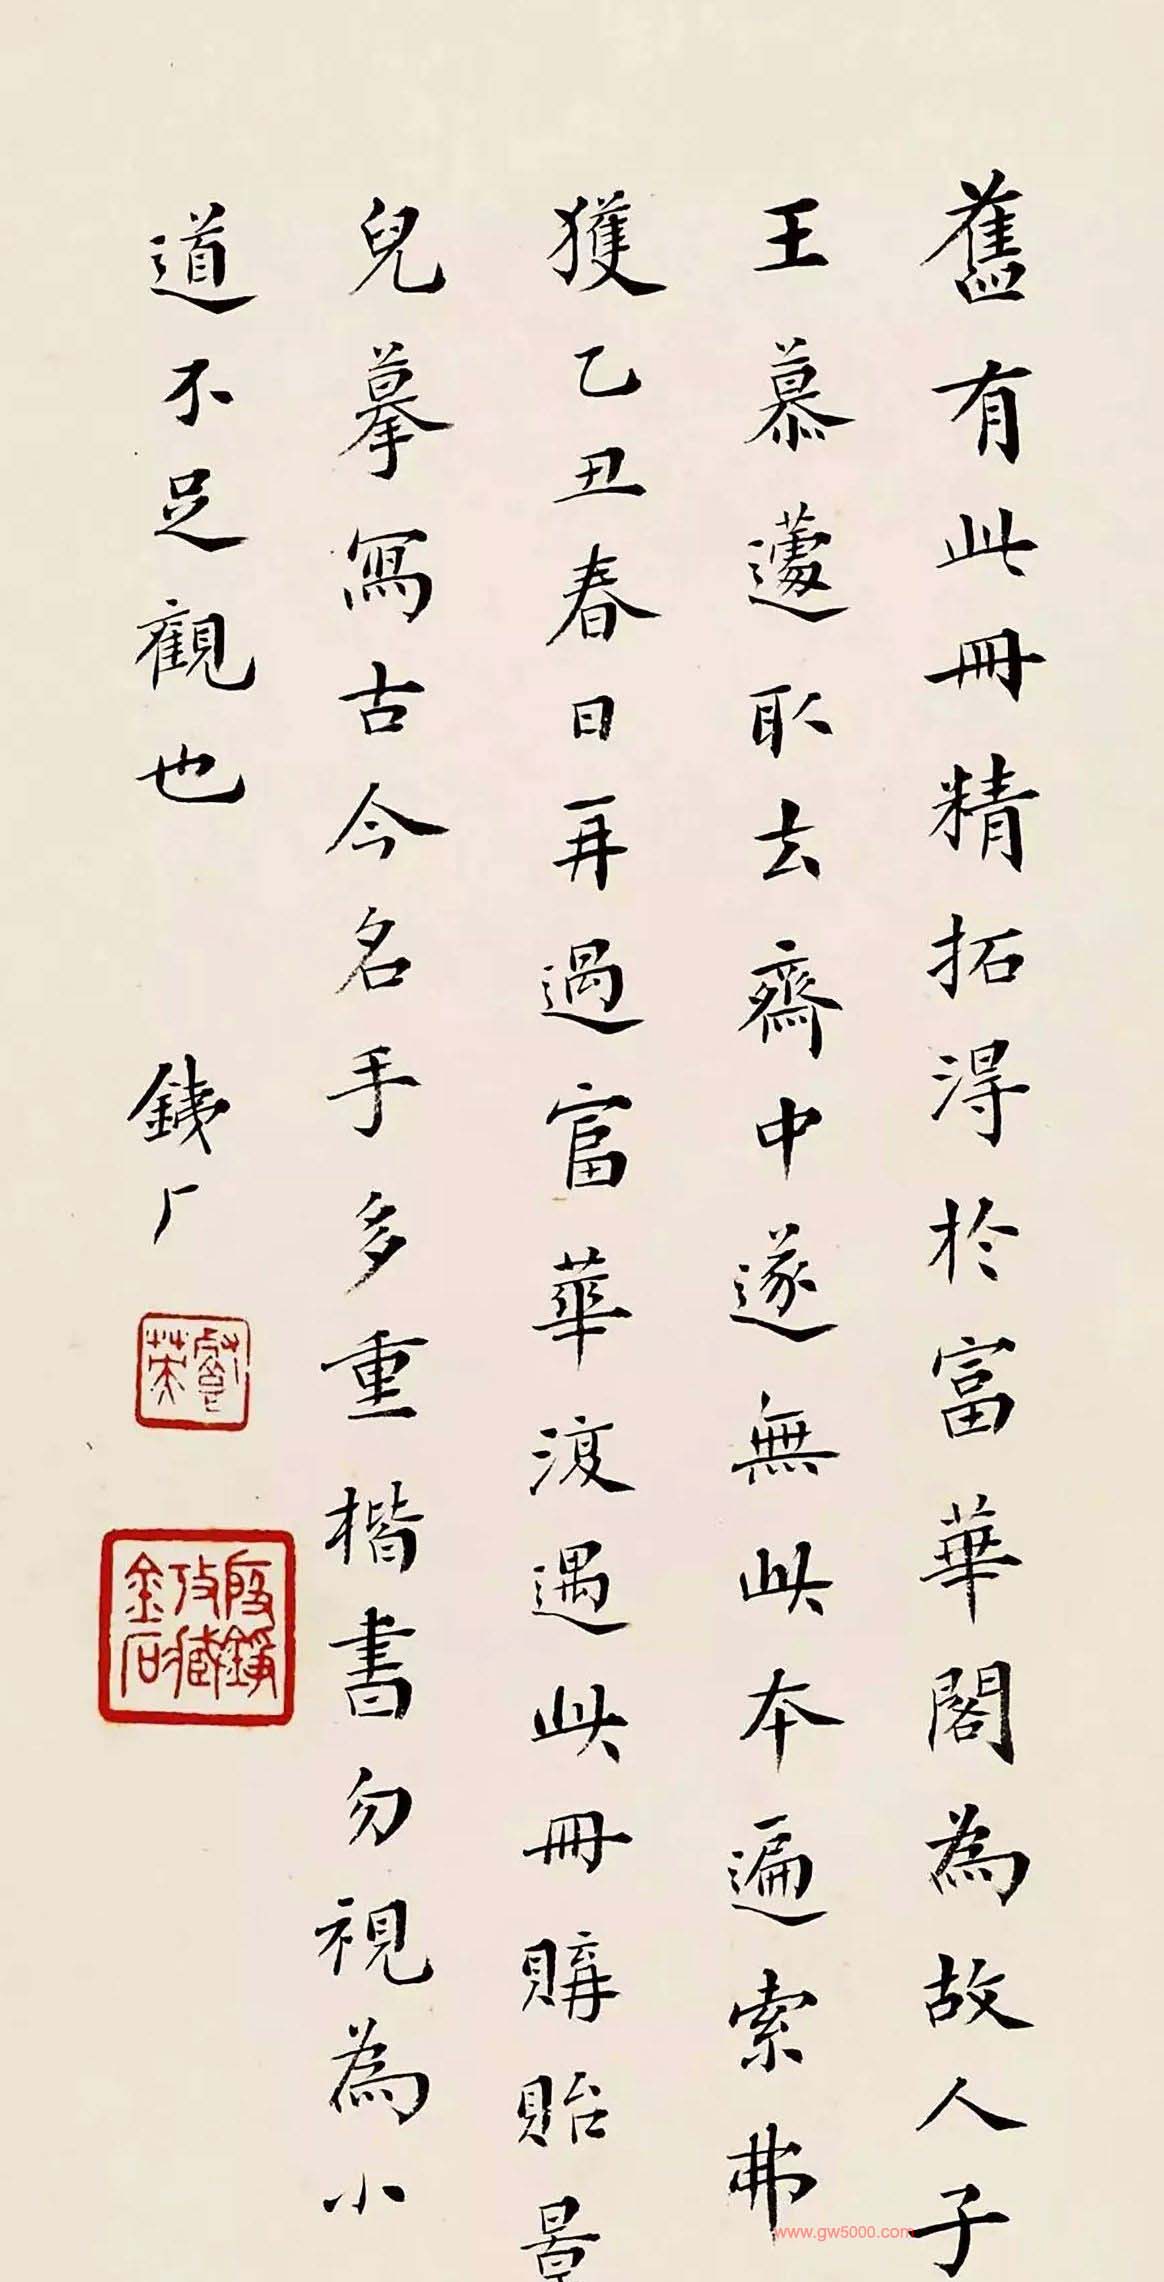 舊有此冊精拓淂於富華閣為故人子
王慕蘧取去齋中遂無此本遍索弗
獲乙丑春日再過富華復遇此冊購貽景
兒摹寫古今名手多重楷書勿視為小
道不足觀也
銕厂
殷錚攷藏金石
www.gw5000.com